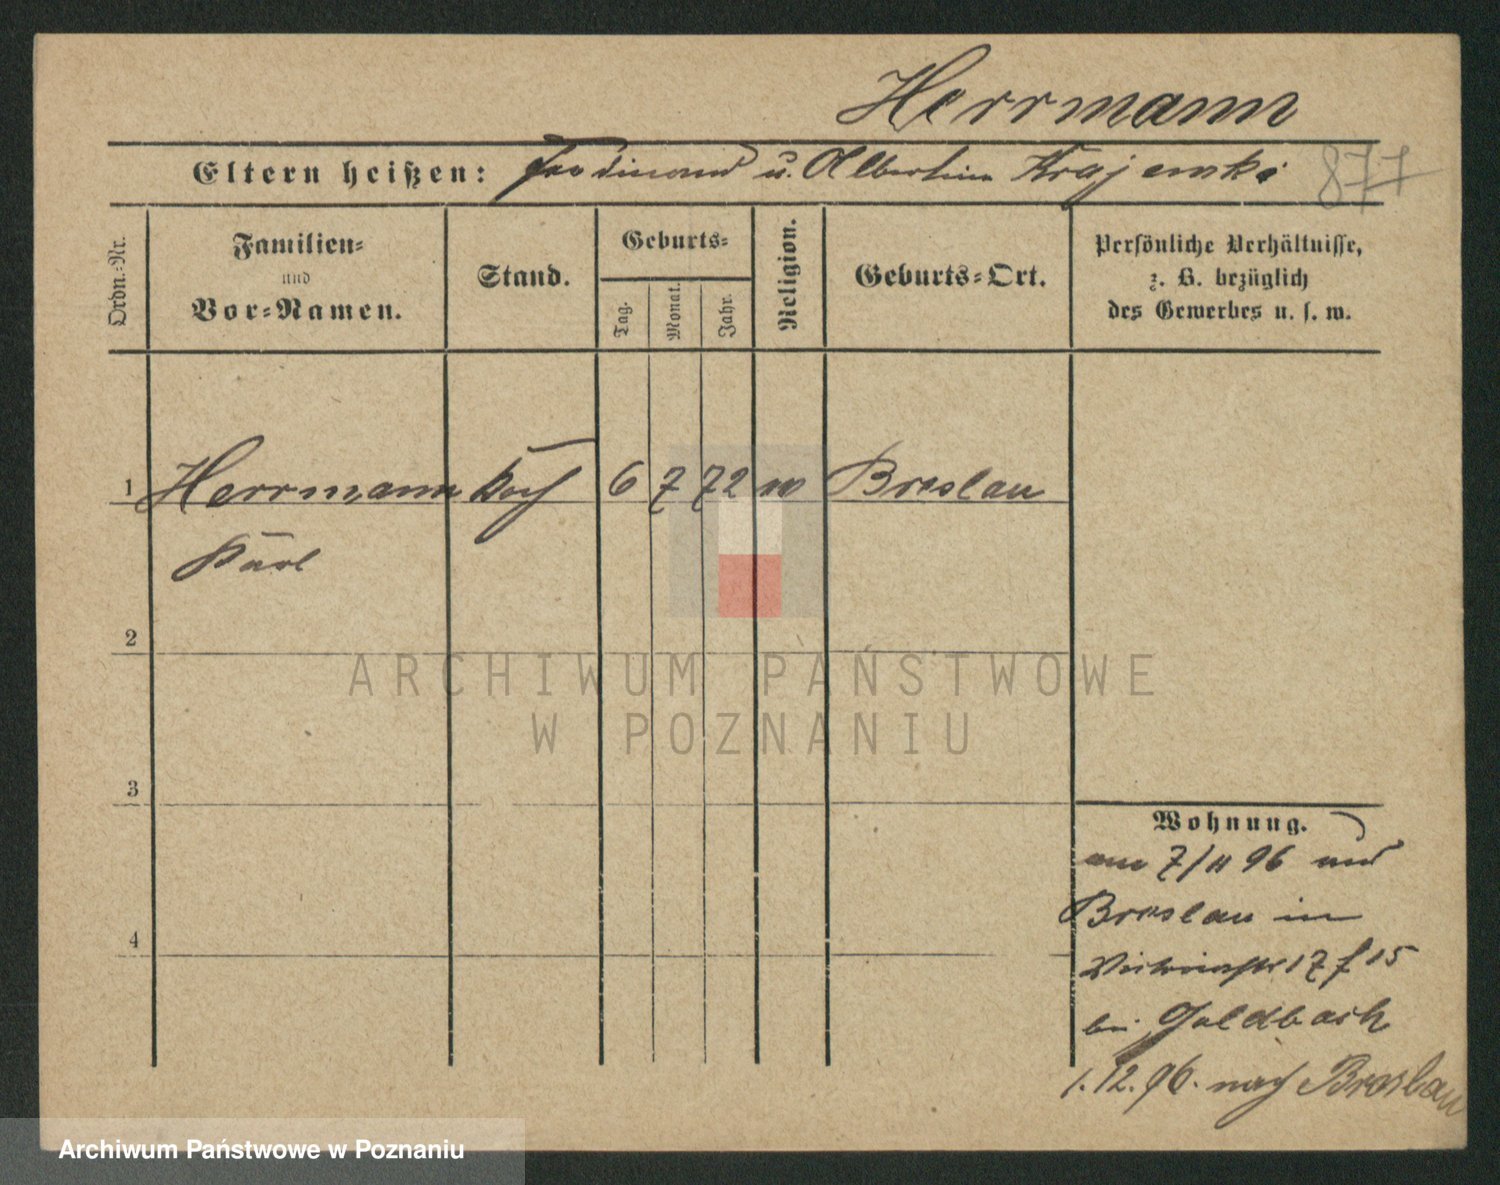 Herrmann
Eltern heißen: Ferdinand u. Albertine Krajewski 877
Ordn.=Nr.
Familien=
und
Vor=Namen.
Stand.
Geburts=
Tag.
Monat.
Jahr.
Religion.
Geburts=Ort.
Persönliche Verhältnisse,
z. B. bezüglich
des Gewerbes u. s. w.
1 Herrmann Koch 6 7 72 Breslau
Karl
2
ARCHIWUM PAŃSTWOWE
W POZNANIU
3
4
Wohnung.
am 7/11 96 aus
Breslau in
17/15
bei Goldbach
1.12.96. nach Breslau
Archiwum Państwowe w Poznaniu